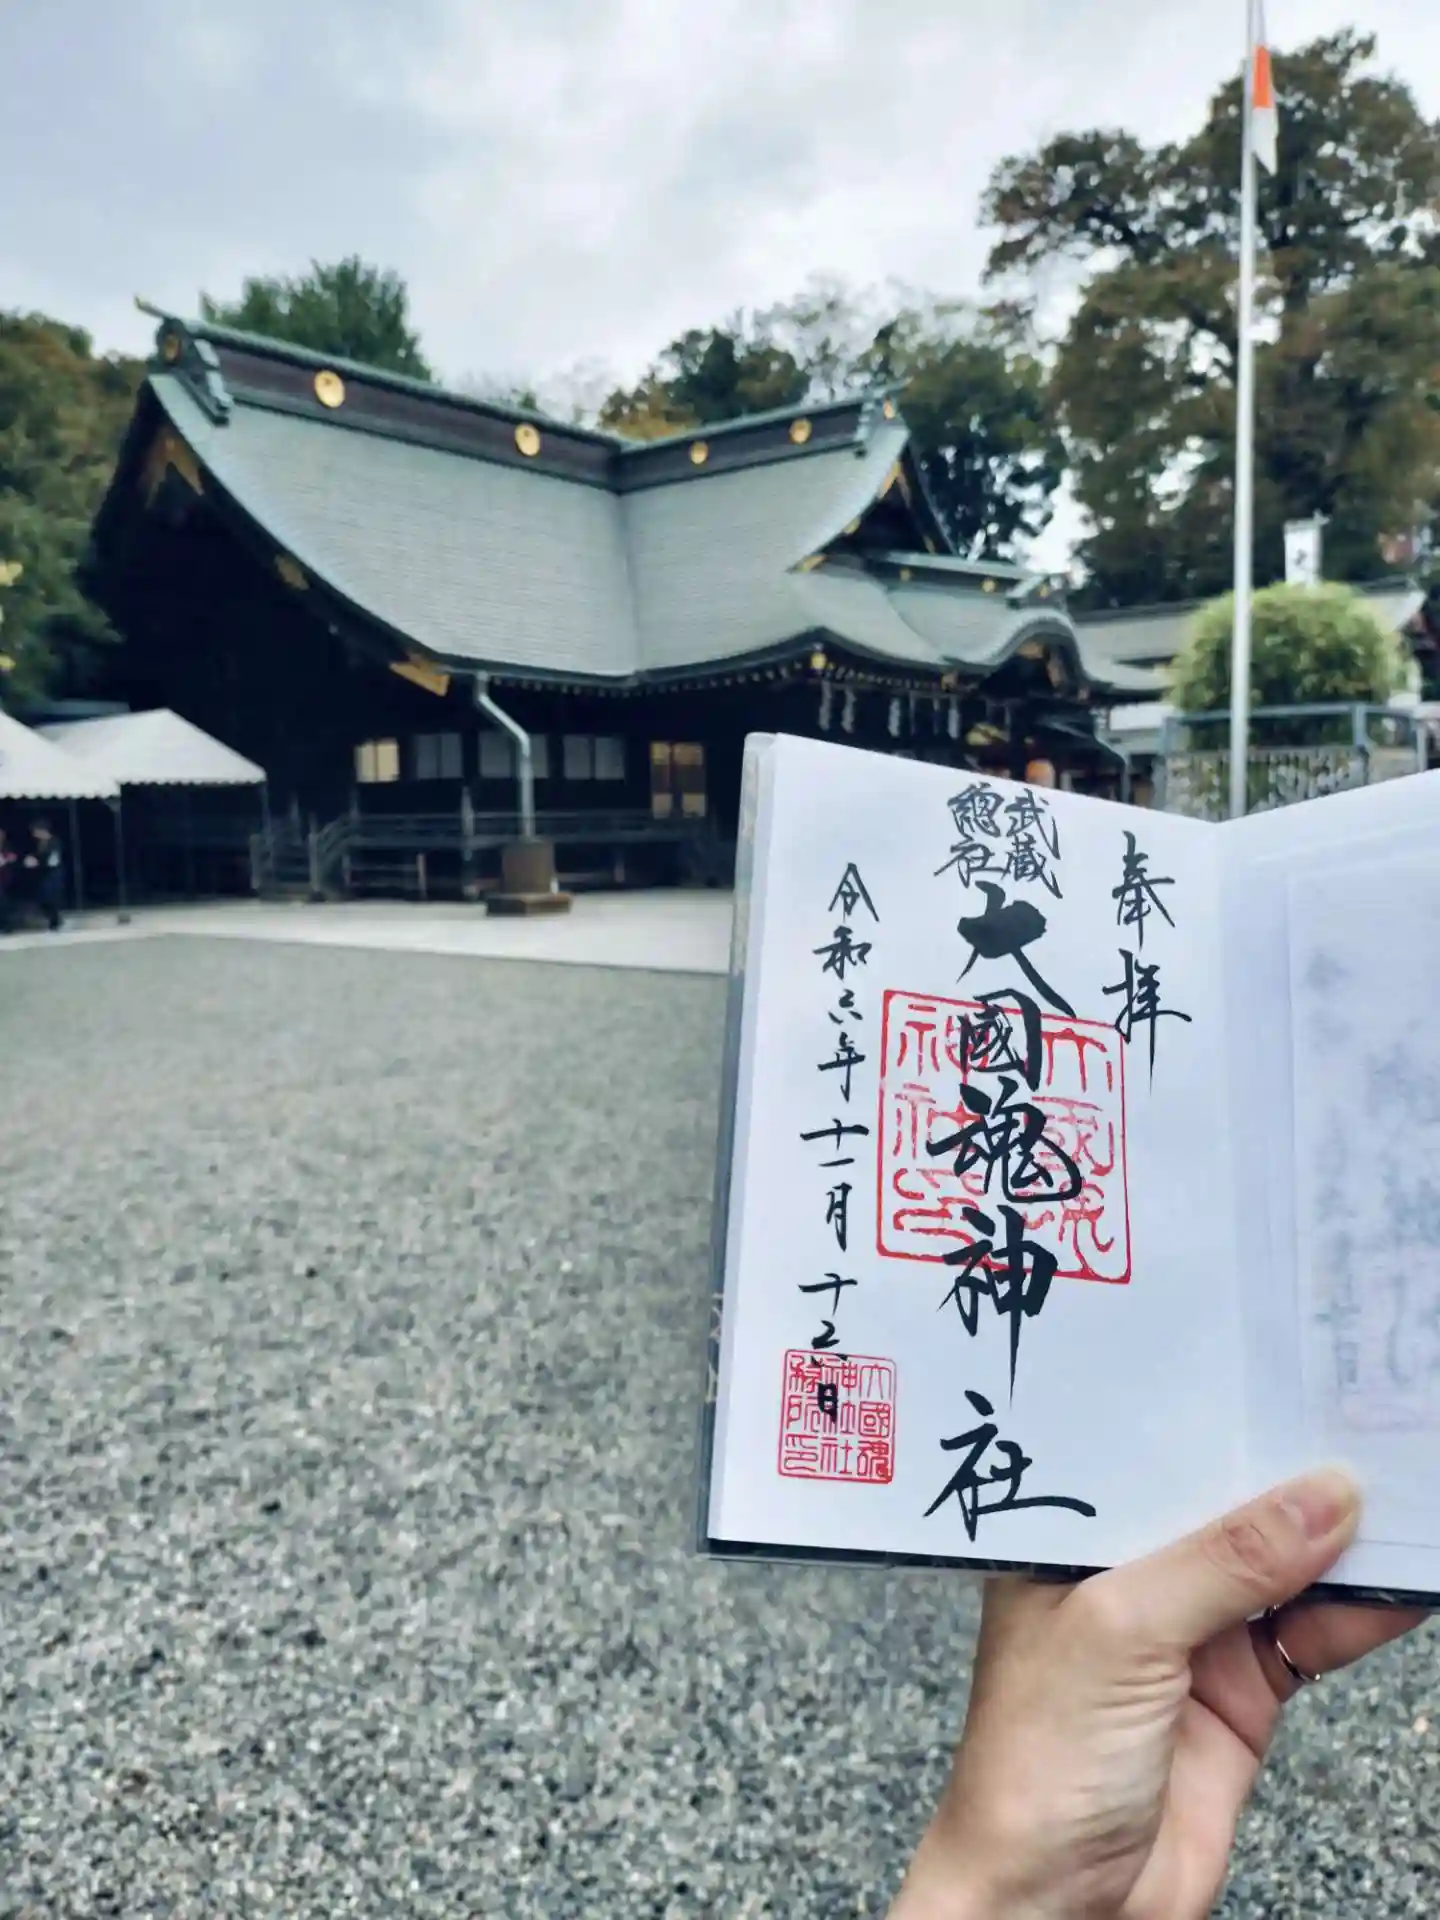 奉拝
武蔵
總社
大國魂神社
令和六年十一月十二日
大國魂
神社印
大國魂
神社社
務所印